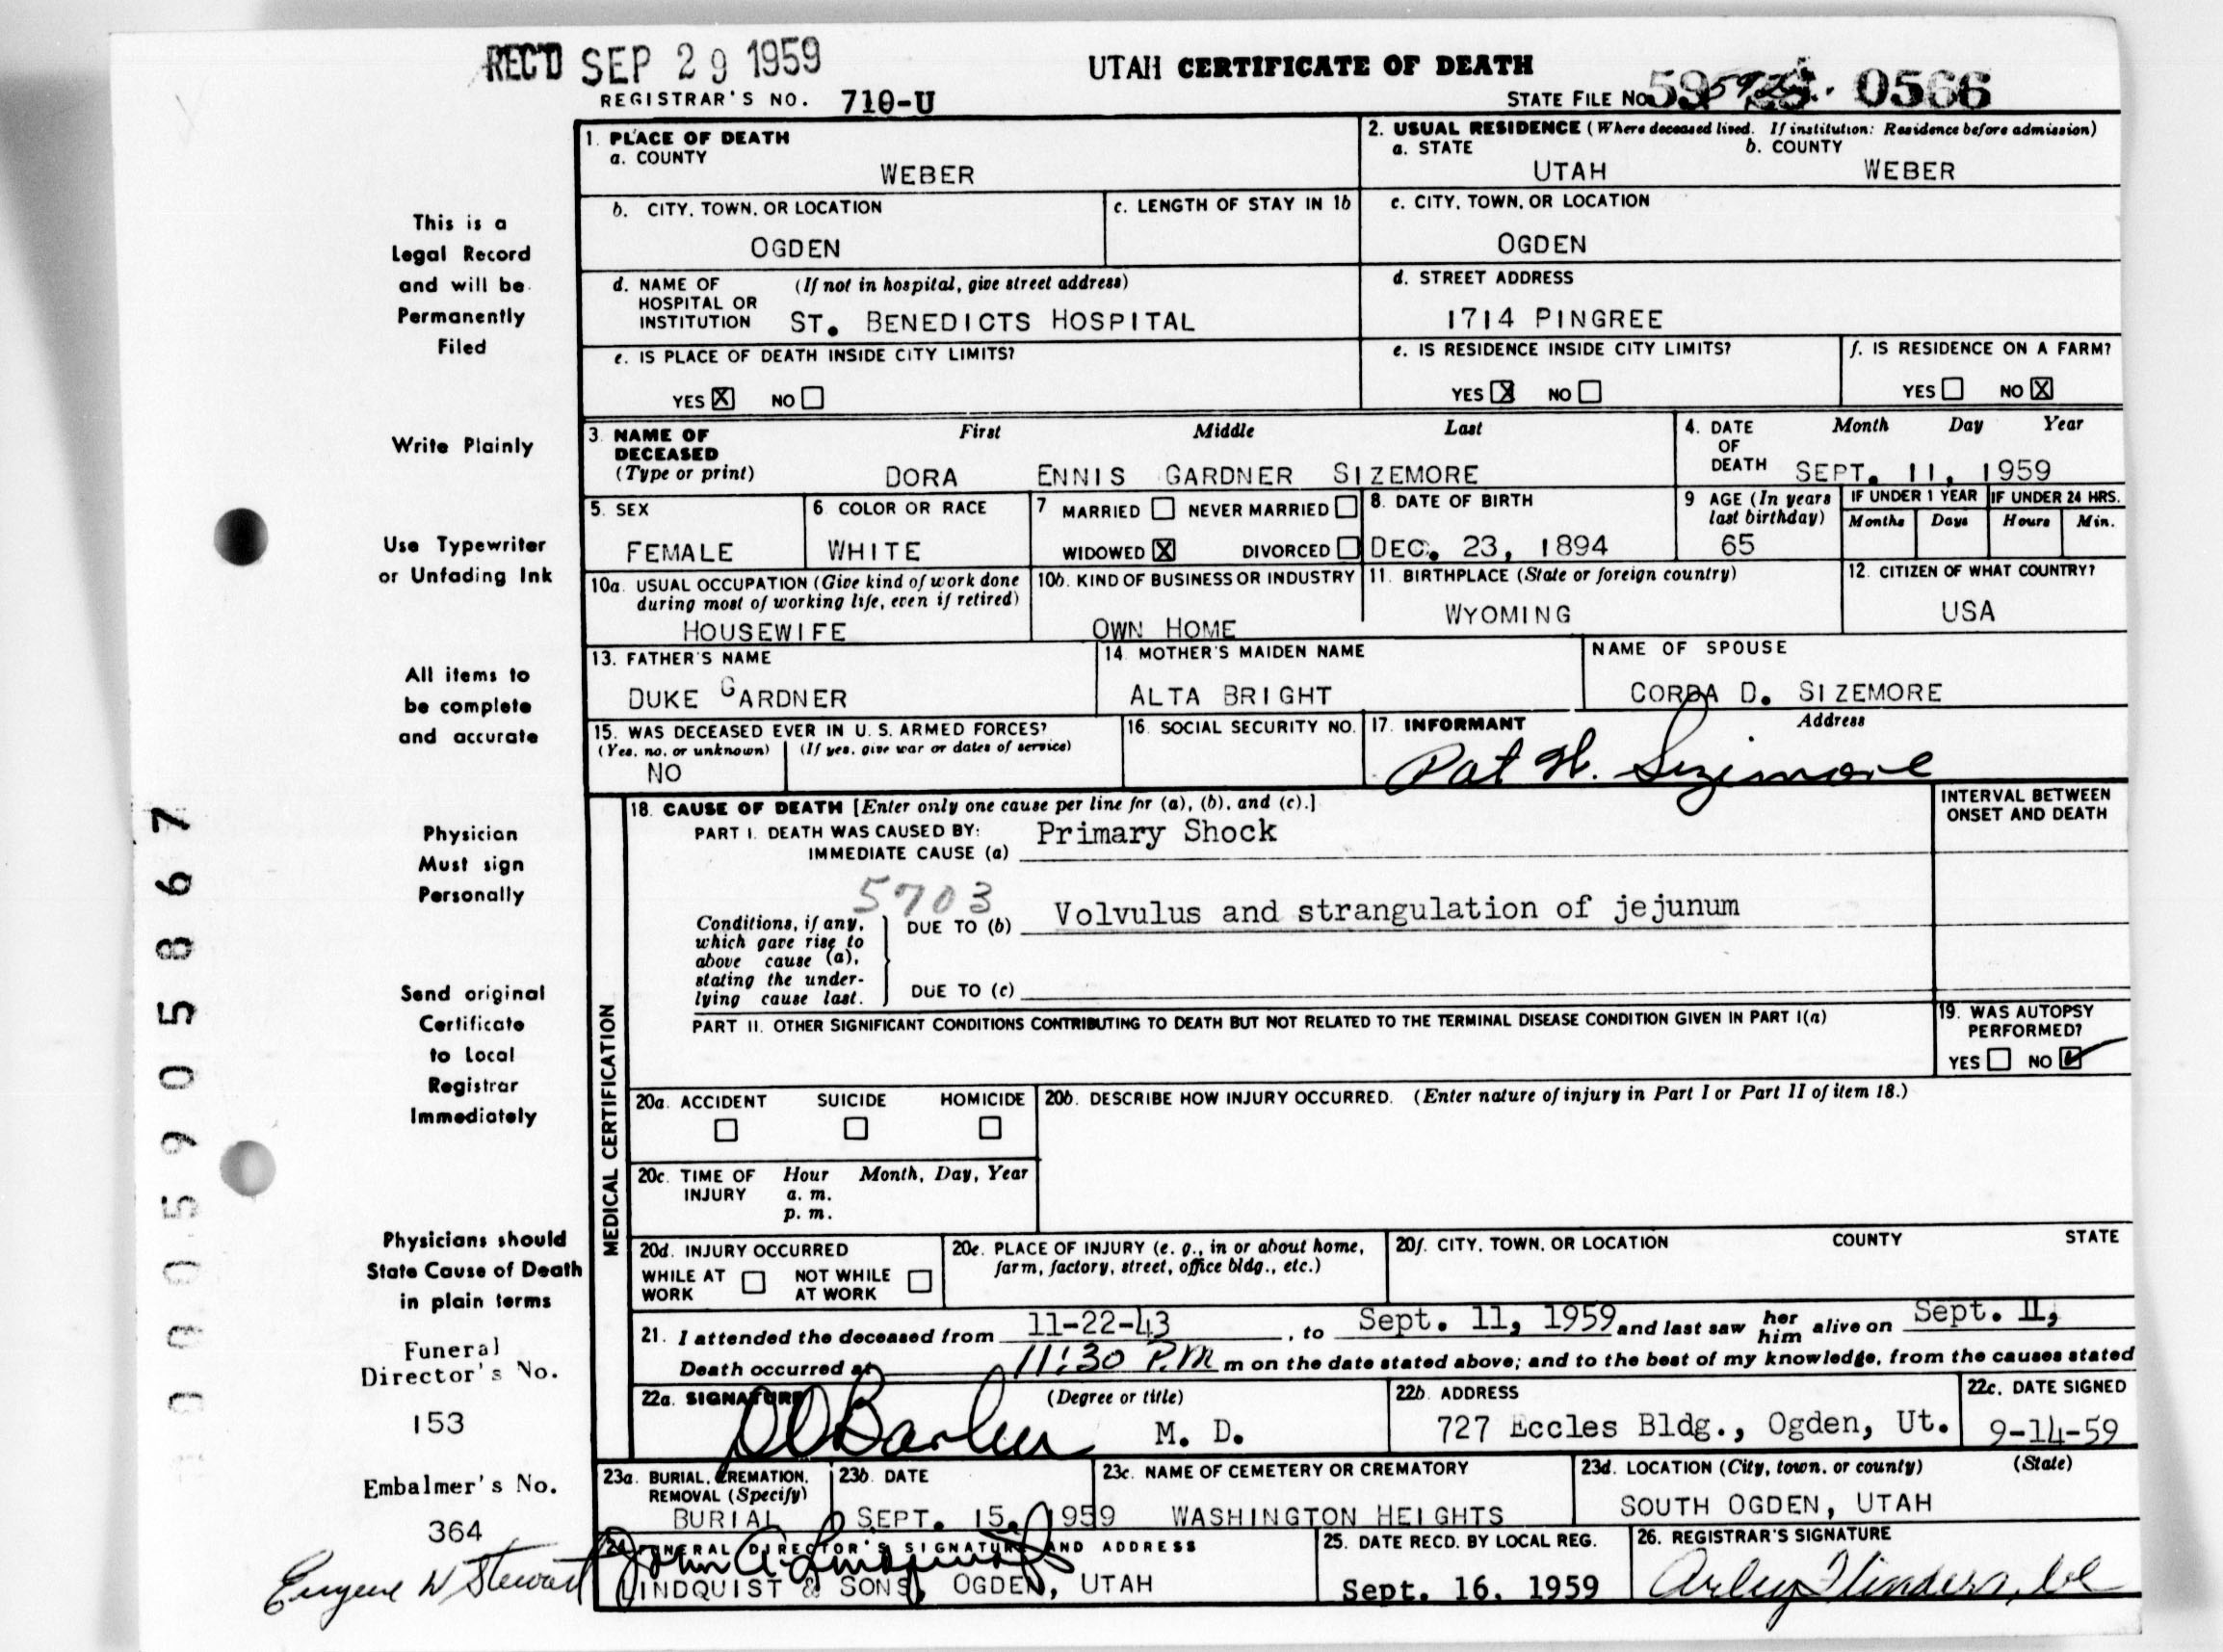 REC'D SEP 29 1959
UTAH CERTIFICATE OF DEATH
REGISTRAR'S NO. 710-U
STATE FILE No. 59 0566
1. PLACE OF DEATH
a. COUNTY
WEBER
2. USUAL RESIDENCE (Where deceased lived. If institution: Residence before admission)
a. STATE b. COUNTY
UTAH WEBER
b. CITY, TOWN, OR LOCATION
OGDEN
c. LENGTH OF STAY IN 1b
c. CITY, TOWN, OR LOCATION
OGDEN
d. NAME OF (If not in hospital, give street address)
HOSPITAL OR
INSTITUTION ST. BENEDICTS HOSPITAL
d. STREET ADDRESS
1714 PINGREE
e. IS PLACE OF DEATH INSIDE CITY LIMITS?
YES X NO
e. IS RESIDENCE INSIDE CITY LIMITS?
YES X NO
f. IS RESIDENCE ON A FARM?
YES NO X
3. NAME OF First Middle Last
DECEASED
(Type or print) DORA ENNIS GARDNER SIZEMORE
4. DATE Month Day Year
OF
DEATH SEPT. 11, 1959
5. SEX
FEMALE
6 COLOR OR RACE
WHITE
7 MARRIED NEVER MARRIED
WIDOWED X DIVORCED
8. DATE OF BIRTH
DEC. 23, 1894
9 AGE (In years
last birthday)
65
IF UNDER 1 YEAR IF UNDER 24 HRS.
Months Days Hours Min.
10a. USUAL OCCUPATION (Give kind of work done
during most of working life, even if retired)
HOUSEWIFE
10b. KIND OF BUSINESS OR INDUSTRY
OWN HOME
11. BIRTHPLACE (State or foreign country)
WYOMING
12. CITIZEN OF WHAT COUNTRY?
USA
13. FATHER'S NAME
DUKE GARDNER
14. MOTHER'S MAIDEN NAME
ALTA BRIGHT
NAME OF SPOUSE
CORDA D. SIZEMORE
15. WAS DECEASED EVER IN U. S. ARMED FORCES?
(Yes, no, or unknown) (If yes, give war or dates of service)
NO
16. SOCIAL SECURITY NO.
17. INFORMANT Address
Pat H. Sizemore
MEDICAL CERTIFICATION
18. CAUSE OF DEATH [Enter only one cause per line for (a), (b), and (c).]
INTERVAL BETWEEN
ONSET AND DEATH
PART I. DEATH WAS CAUSED BY:
IMMEDIATE CAUSE (a) Primary Shock
5703
Conditions, if any,
which gave rise to
above cause (a),
stating the under-
lying cause last.
DUE TO (b) Volvulus and strangulation of jejunum
DUE TO (c)
PART II. OTHER SIGNIFICANT CONDITIONS CONTRIBUTING TO DEATH BUT NOT RELATED TO THE TERMINAL DISEASE CONDITION GIVEN IN PART I(a)
19. WAS AUTOPSY
PERFORMED?
YES NO ✓
20a. ACCIDENT SUICIDE HOMICIDE
20b. DESCRIBE HOW INJURY OCCURRED. (Enter nature of injury in Part I or Part II of item 18.)
20c. TIME OF Hour Month, Day, Year
INJURY a. m.
p. m.
20d. INJURY OCCURRED
WHILE AT NOT WHILE
WORK AT WORK
20e. PLACE OF INJURY (e. g., in or about home,
farm, factory, street, office bldg., etc.)
20f. CITY, TOWN, OR LOCATION COUNTY STATE
21. I attended the deceased from 11-22-43, to Sept. 11, 1959 and last saw her him alive on Sept. 11,
Death occurred at 11:30 P.M m on the date stated above; and to the best of my knowledge, from the causes stated
22a. SIGNATURE (Degree or title)
M. D.
22b. ADDRESS
727 Eccles Bldg., Ogden, Ut.
22c. DATE SIGNED
9-14-59
23a. BURIAL, CREMATION,
REMOVAL (Specify)
BURIAL
23b. DATE
SEPT. 15, 1959
23c. NAME OF CEMETERY OR CREMATORY
WASHINGTON HEIGHTS
23d. LOCATION (City, town, or county) (State)
SOUTH OGDEN, UTAH
24. FUNERAL DIRECTOR'S SIGNATURE AND ADDRESS
John A. Lindquist
LINDQUIST & SONS, OGDEN, UTAH
25. DATE RECD. BY LOCAL REG.
Sept. 16, 1959
26. REGISTRAR'S SIGNATURE
Arley Flinders
This is a
Legal Record
and will be
Permanently
Filed
Write Plainly
Use Typewriter
or Unfading Ink
All items to
be complete
and accurate
Physician
Must sign
Personally
Send original
Certificate
to Local
Registrar
Immediately
Physicians should
State Cause of Death
in plain terms
Funeral
Director's No.
153
Embalmer's No.
364
Eugene W Stewart
0005905867